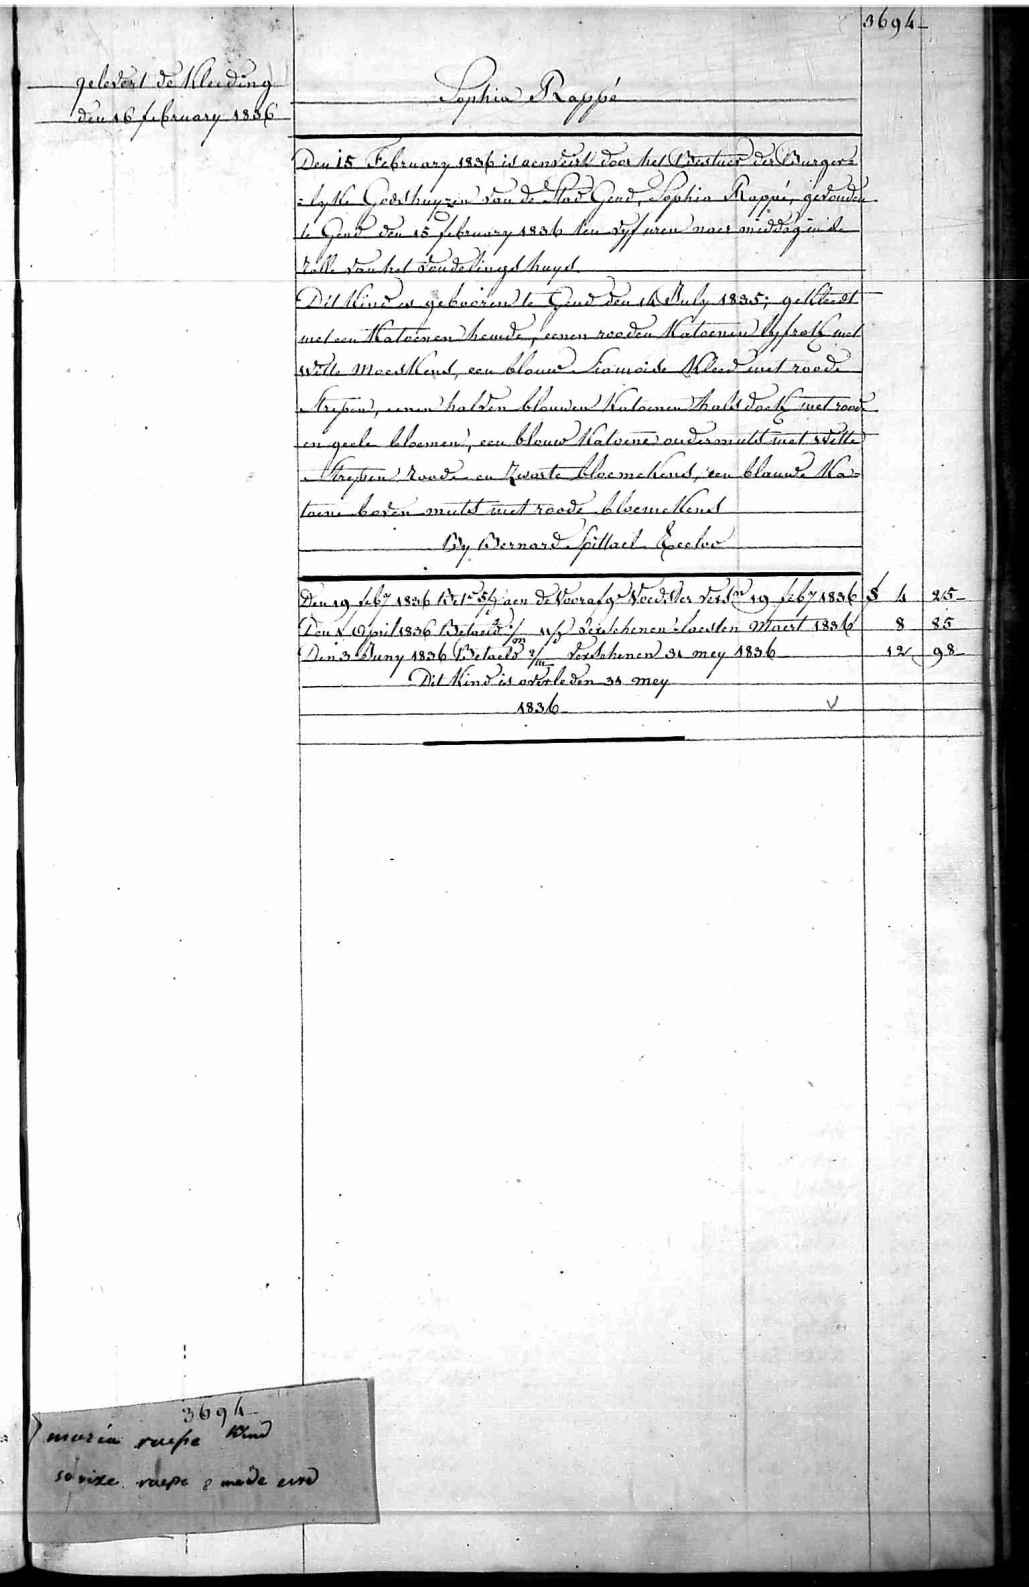 3694
gelevert de Kleeding
den 16 february 1836
Sophia Rappé
Den 15 February 1836 is aenveirt door het Bestuer der Burger=
=lyke Godshuyzen van de Stad Gend, Sophia Rappé, gevonden
te Gend den 15 february 1836 ten vyf uren naer middag in de
rolle van het vondelings huys.
Dit Kind is gebooren te Gend den 14 July 1835; gekleedt
met een Katoenen hemde, eenen rooden Katoenen lyfrok met
witte moeskens, een blauw Siamoise Kleed met roode
strepen, eenen halven blauwen Katoenen halsdoek met roode
en geele bloemen, een blouw Katoene ondermuts met witte
strepen roode en zwarte bloemekens, een blauwe Ka-
toene boven muts met roode bloemekens
By Bernard Spittael Eecloo
Den 19 feby 1836 aen de Voorafge Voedster 19 feby 1836 4 25
Den 1 April 1836 Betaeld verschenen Maert 1836 8 85
Den 3 Juny 1836 Betaeld verschenen 31 mey 1836 12 98
Dit Kind is overleden 31 mey
1836
3694
maria raepe kind
raepe mede